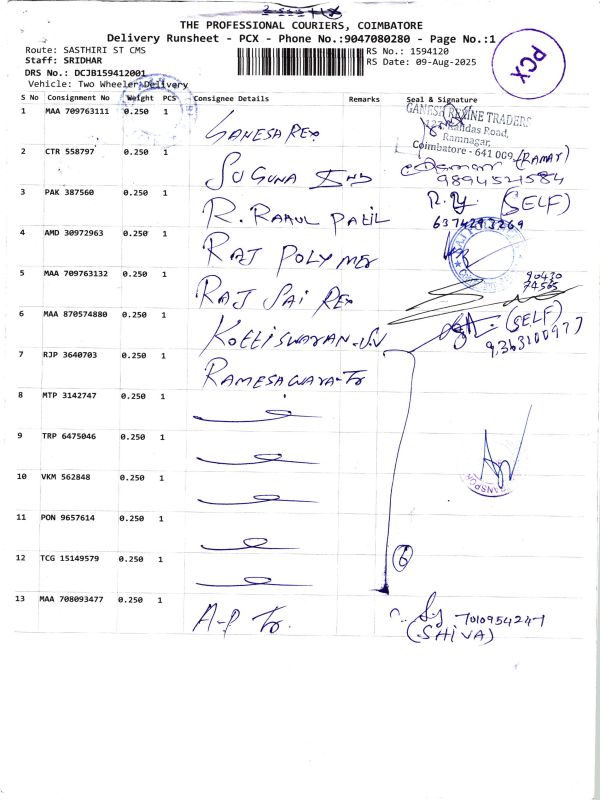 THE PROFESSIONAL COURIERS, COIMBATORE
Delivery Runsheet - PCX - Phone No.:9047080280 - Page No.:1
PCX
Route: SASTHIRI ST CMS
RS No.: 1594120
Staff: SRIDHAR
RS Date: 09-Aug-2025
DRS No.: DCJB159412001
Vehicle: Two Wheeler Delivery
S No Consignment No Weight PCS Consignee Details Remarks Seal & Signature
1 MAA 709763111 0.250 1 GANESA Rex
GANESA REXINE TRADERS
Ramnagar,
Coimbatore - 641 009
2 CTR 558797 0.250 1 SUGUNA IND (RAMAR)
9894521584
3 PAK 387560 0.250 1 R. RAHUL PATIL (SELF)
6374293269
4 AMD 30972963 0.250 1 RAJ POLYMER
5 MAA 709763132 0.250 1 RAJ SAI REX
90430
74565
6 MAA 870574880 0.250 1 KOTTISWARAN (SELF)
9363100977
7 RJP 3640703 0.250 1 RAMESAWARA-Tr
8 MTP 3142747 0.250 1
9 TRP 6475046 0.250 1
10 VKM 562848 0.250 1
11 PON 9657614 0.250 1
12 TCG 15149579 0.250 1
6
13 MAA 708093477 0.250 1 A-P Tr.
7010954247
(SHIVA)